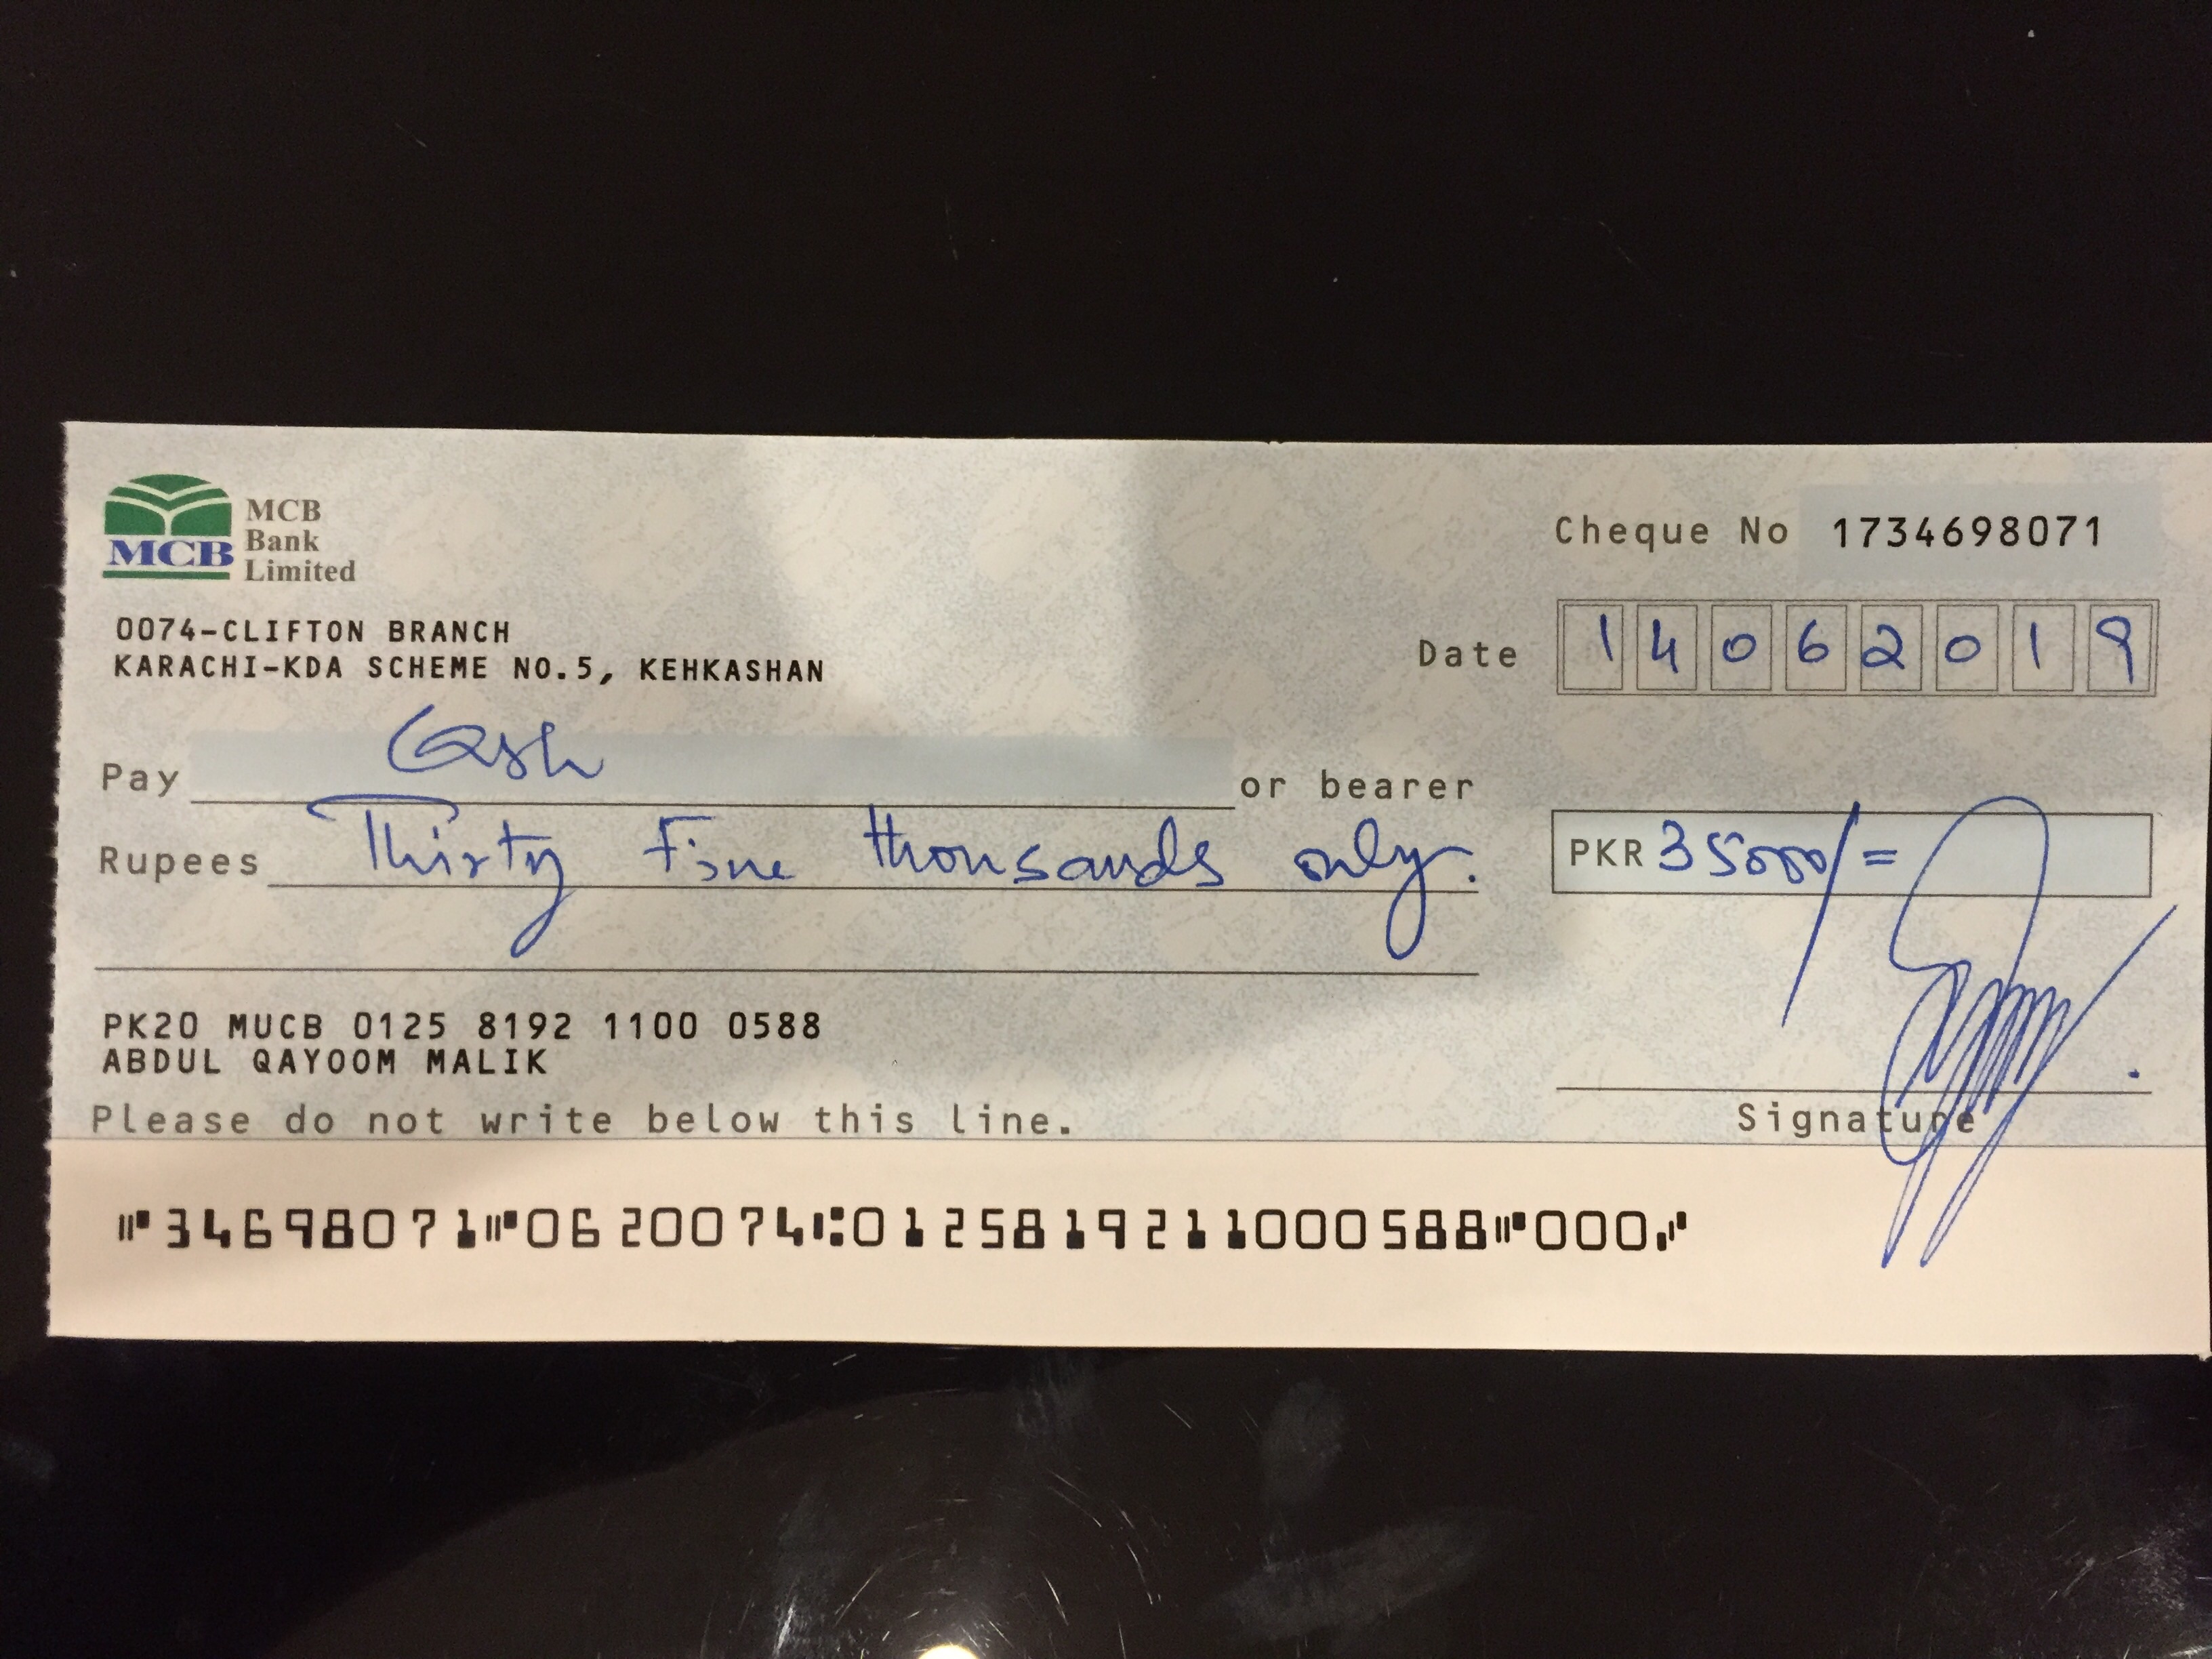 MCB
MCB
Bank
Limited
Cheque No 1734698071
0074-CLIFTON BRANCH
KARACHI-KDA SCHEME NO.5, KEHKASHAN
Date 14062019
Pay Cash or bearer
Rupees Thirty Five thousands only.
PKR 35000/=
PK20 MUCB 0125 8192 1100 0588
ABDUL QAYOOM MALIK
Signature
Please do not write below this line.
⑈34698071⑈0620074⑆0125819211000588⑈000⑈